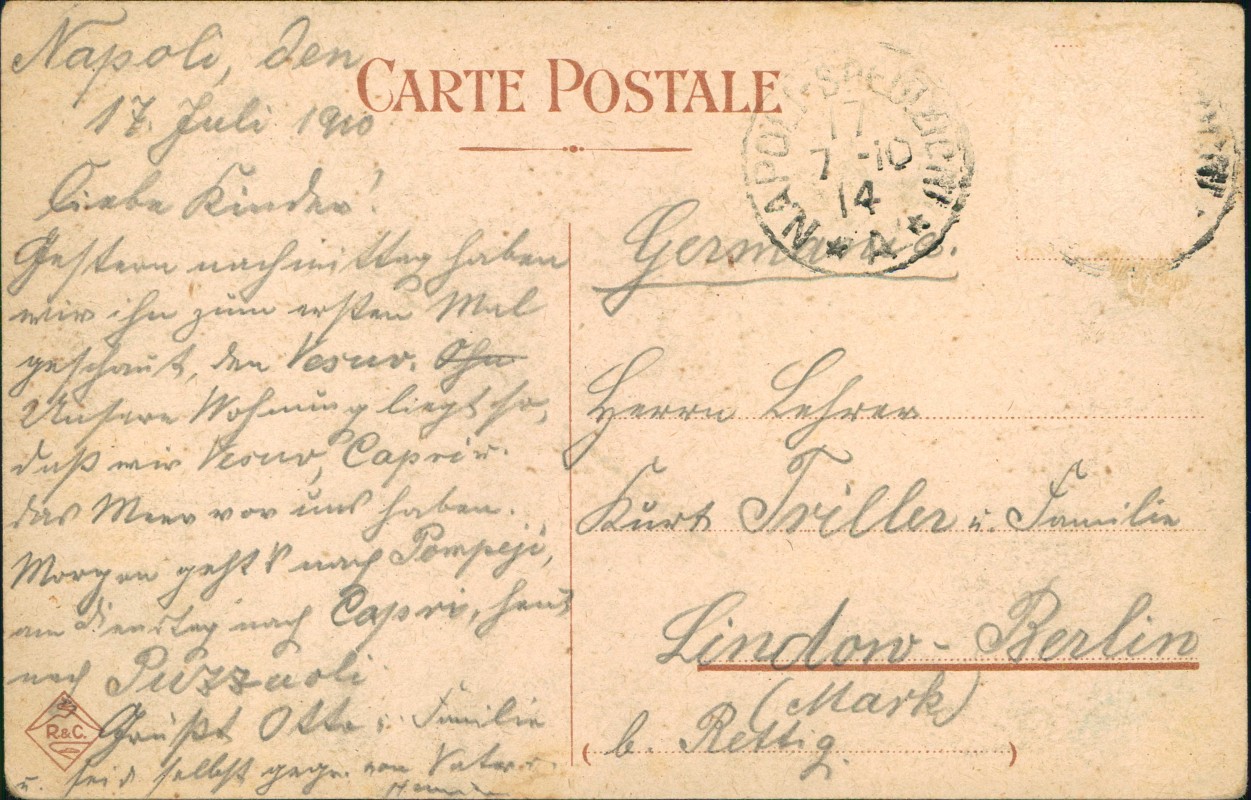 Napoli, den
17. Juli 1910
Liebe Kinder!
Gestern nachmittag haben
wir ihn zum ersten Mal
geschaut, den Vesuv.
Unsere Wohnung liegt so,
daß wir Vesuv, Capri u.
das Meer vor uns haben.
Morgen geht's nach Pompeji,
am Dienstag nach Capri, heut
nach Puzzuoli.
Grüßt Otto u. Familie
u. seid selbst gegr. von Vater
CARTE POSTALE
NAPOLI
17
7 -10
14
Germania.
Herrn Lehrer
Kurt Triller u. Familie
Lindow - Berlin
(Mark)
b. Rettig.
R&C.